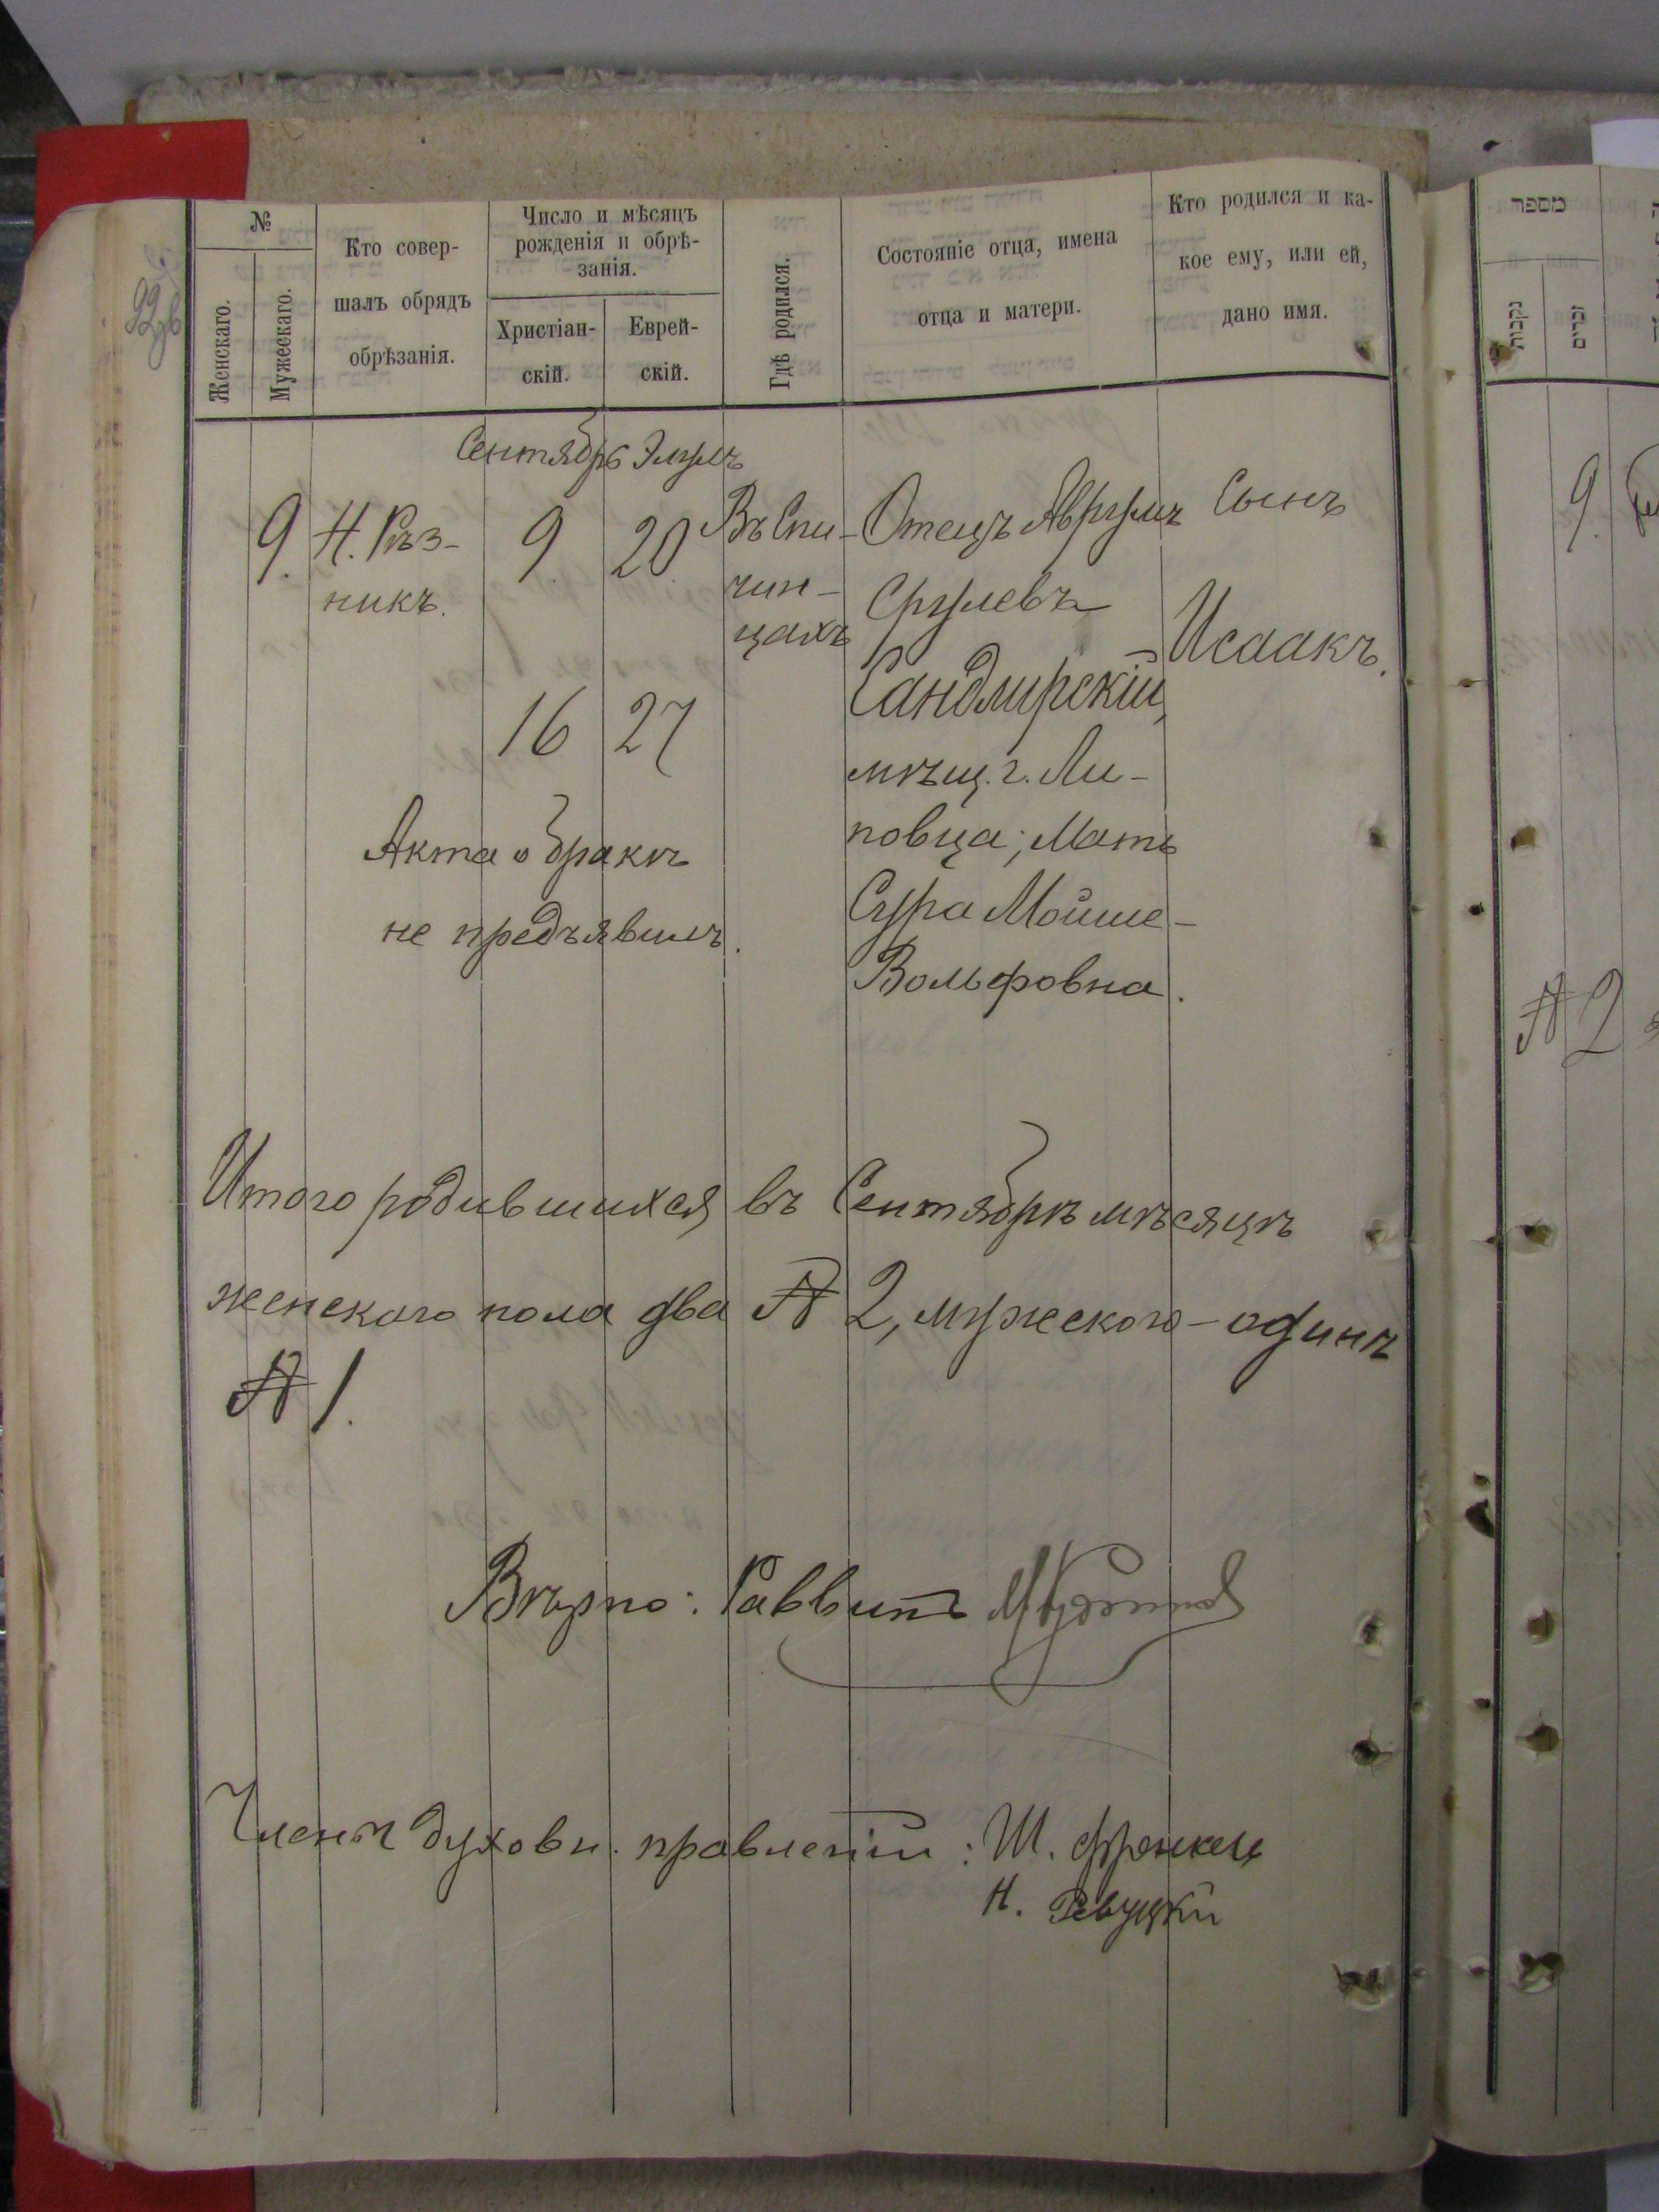 №
Женскаго.
Мужескаго.
Кто совер-
шалъ обрядъ
обрѣзанія.
Число и мѣсяцъ
рожденія и обрѣ-
занія.
Христіан-
скій.
Еврей-
скій.
Гдѣ родился.
Состояніе отца, имена
отца и матери.
Кто родился и ка-
кое ему, или ей,
дано имя.
Сентябрь Элулъ
9. Н. Рѣз-
никъ.
9. 20.
16 27
Въ Спи-
чин-
цахъ
Отецъ Аврумъ
Срулевъ
Сандлирскій,
мѣщ. г. Ли-
повца; Мать
Сура Мойше-
Вольфовна.
Сынъ
Исаакъ.
Акта о бракѣ
не предъявилъ.
Итого родившихся въ Сентябрѣ мѣсяцѣ
женскаго пола два № 2, мужескаго - одинъ
№ 1.
Вѣрно: Раввинъ
Члены духовн. правленія: Ш. Френкель
Н. Ревуцкій
מספר
נקבות
זכרים
9.
№ 2